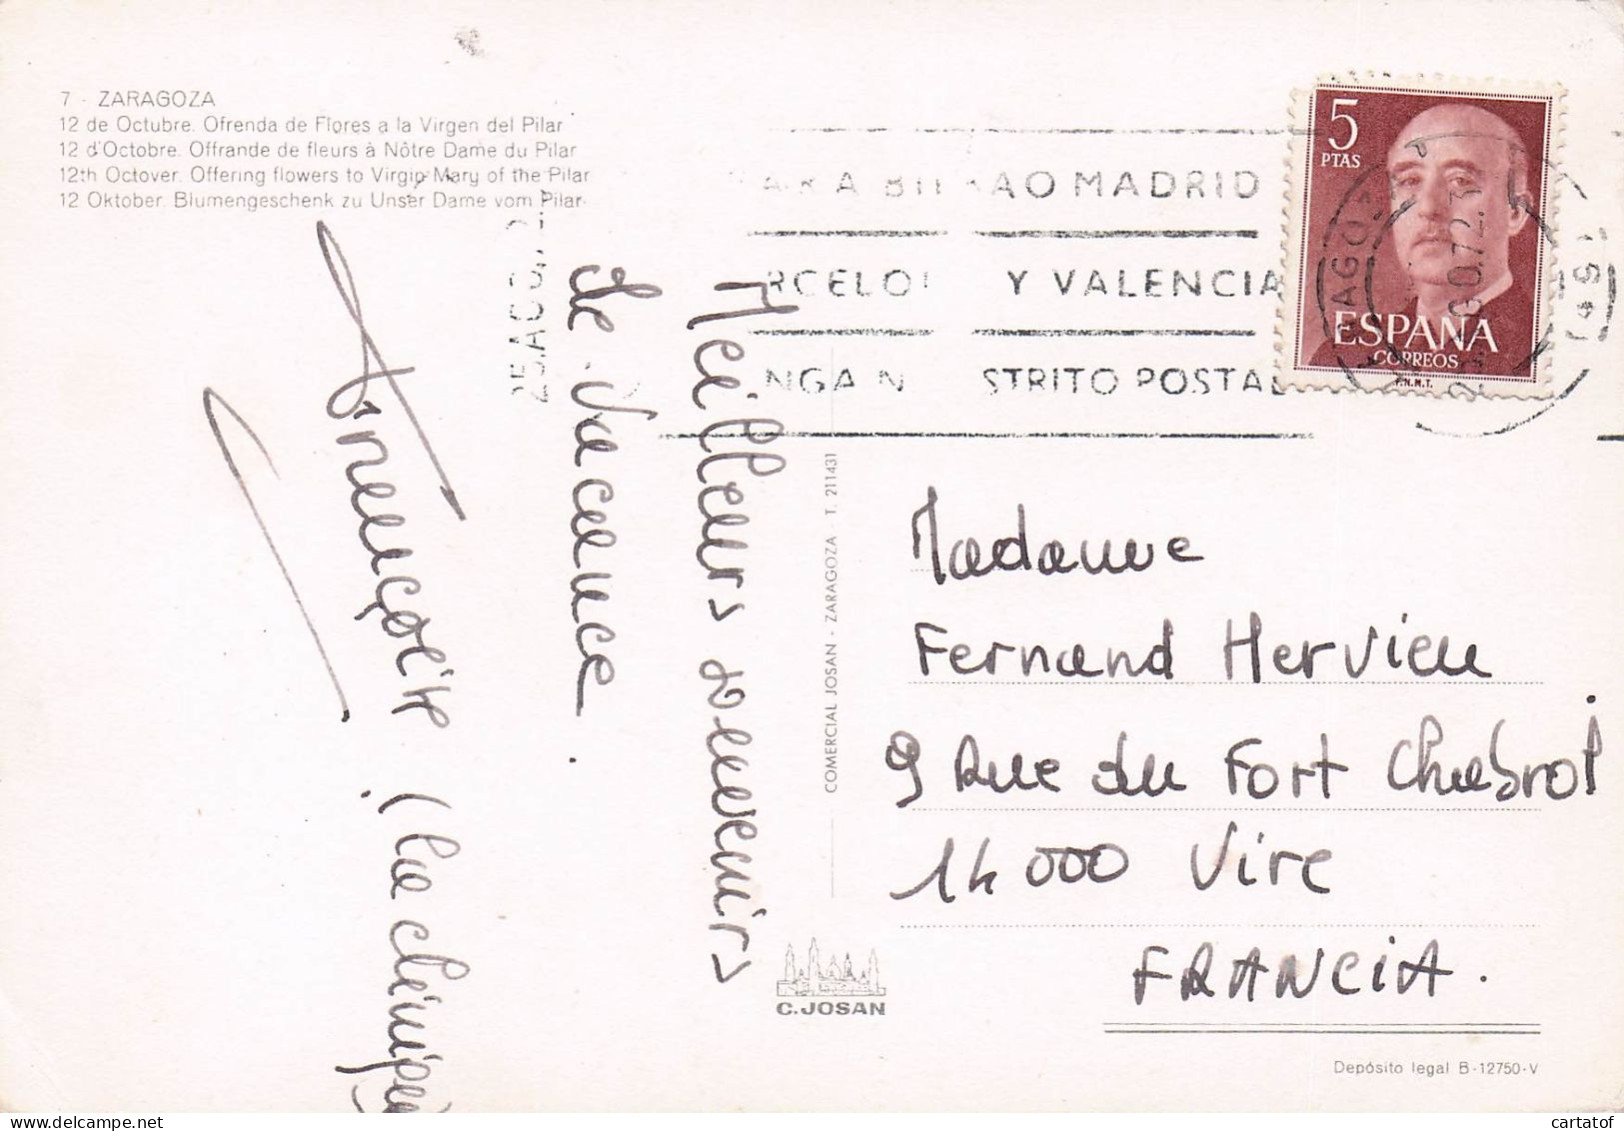 7 - ZARAGOZA
12 de Octubre. Ofrenda de Flores a la Virgen del Pilar
12 d'Octobre. Offrande de fleurs à Nôtre Dame du Pilar
12th Octover. Offering flowers to Virgin Mary of the Pilar
12 Oktober. Blumengeschenk zu Unser Dame vom Pilar
Meilleurs souvenirs
de vacance.
Françoise (la
25.AGO
MADRID
Y VALENCIA
STRITO POSTAL
5
PTAS
ESPAÑA
CORREOS
F.N.M.T.
COMERCIAL JOSAN - ZARAGOZA T. 211431
Madame
Fernand Hervieu
9 Rue du Fort Chabrol
14000 Vire
FRANCIA.
C.JOSAN
Depósito legal B-12750-V
cartatof